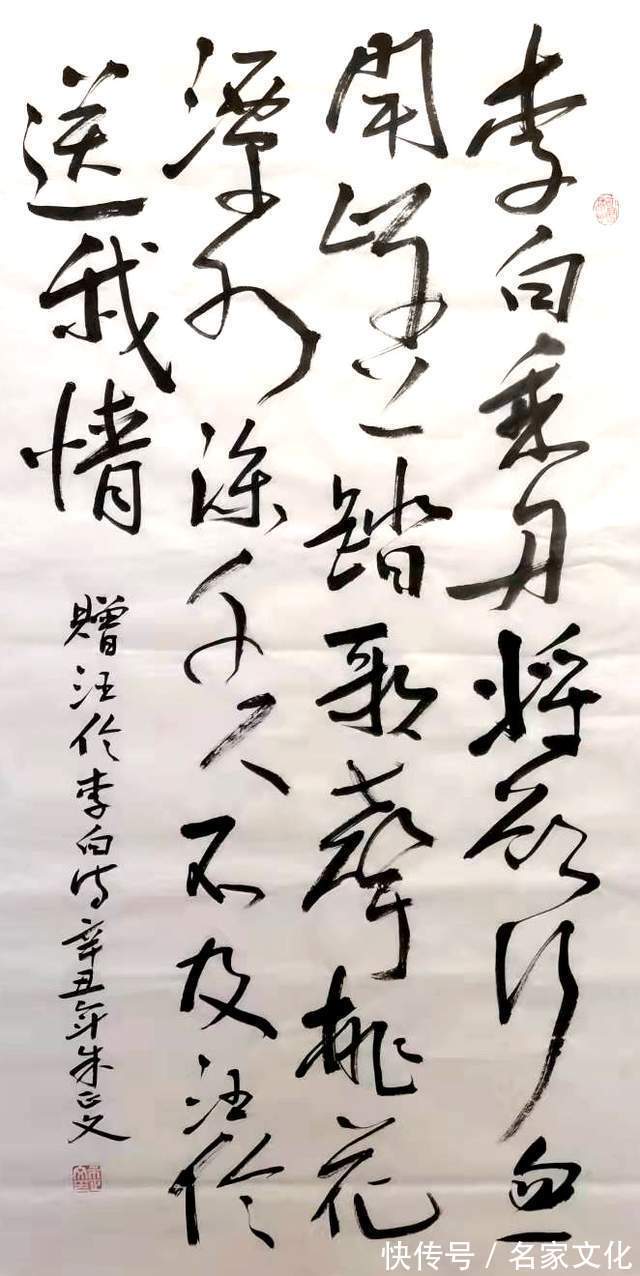 李白乘舟将欲行忽
聞岸上踏歌聲桃花
潭水深千尺不及汪伦
送我情
贈汪伦李白诗辛丑年朱正文
快传号 / 名家文化